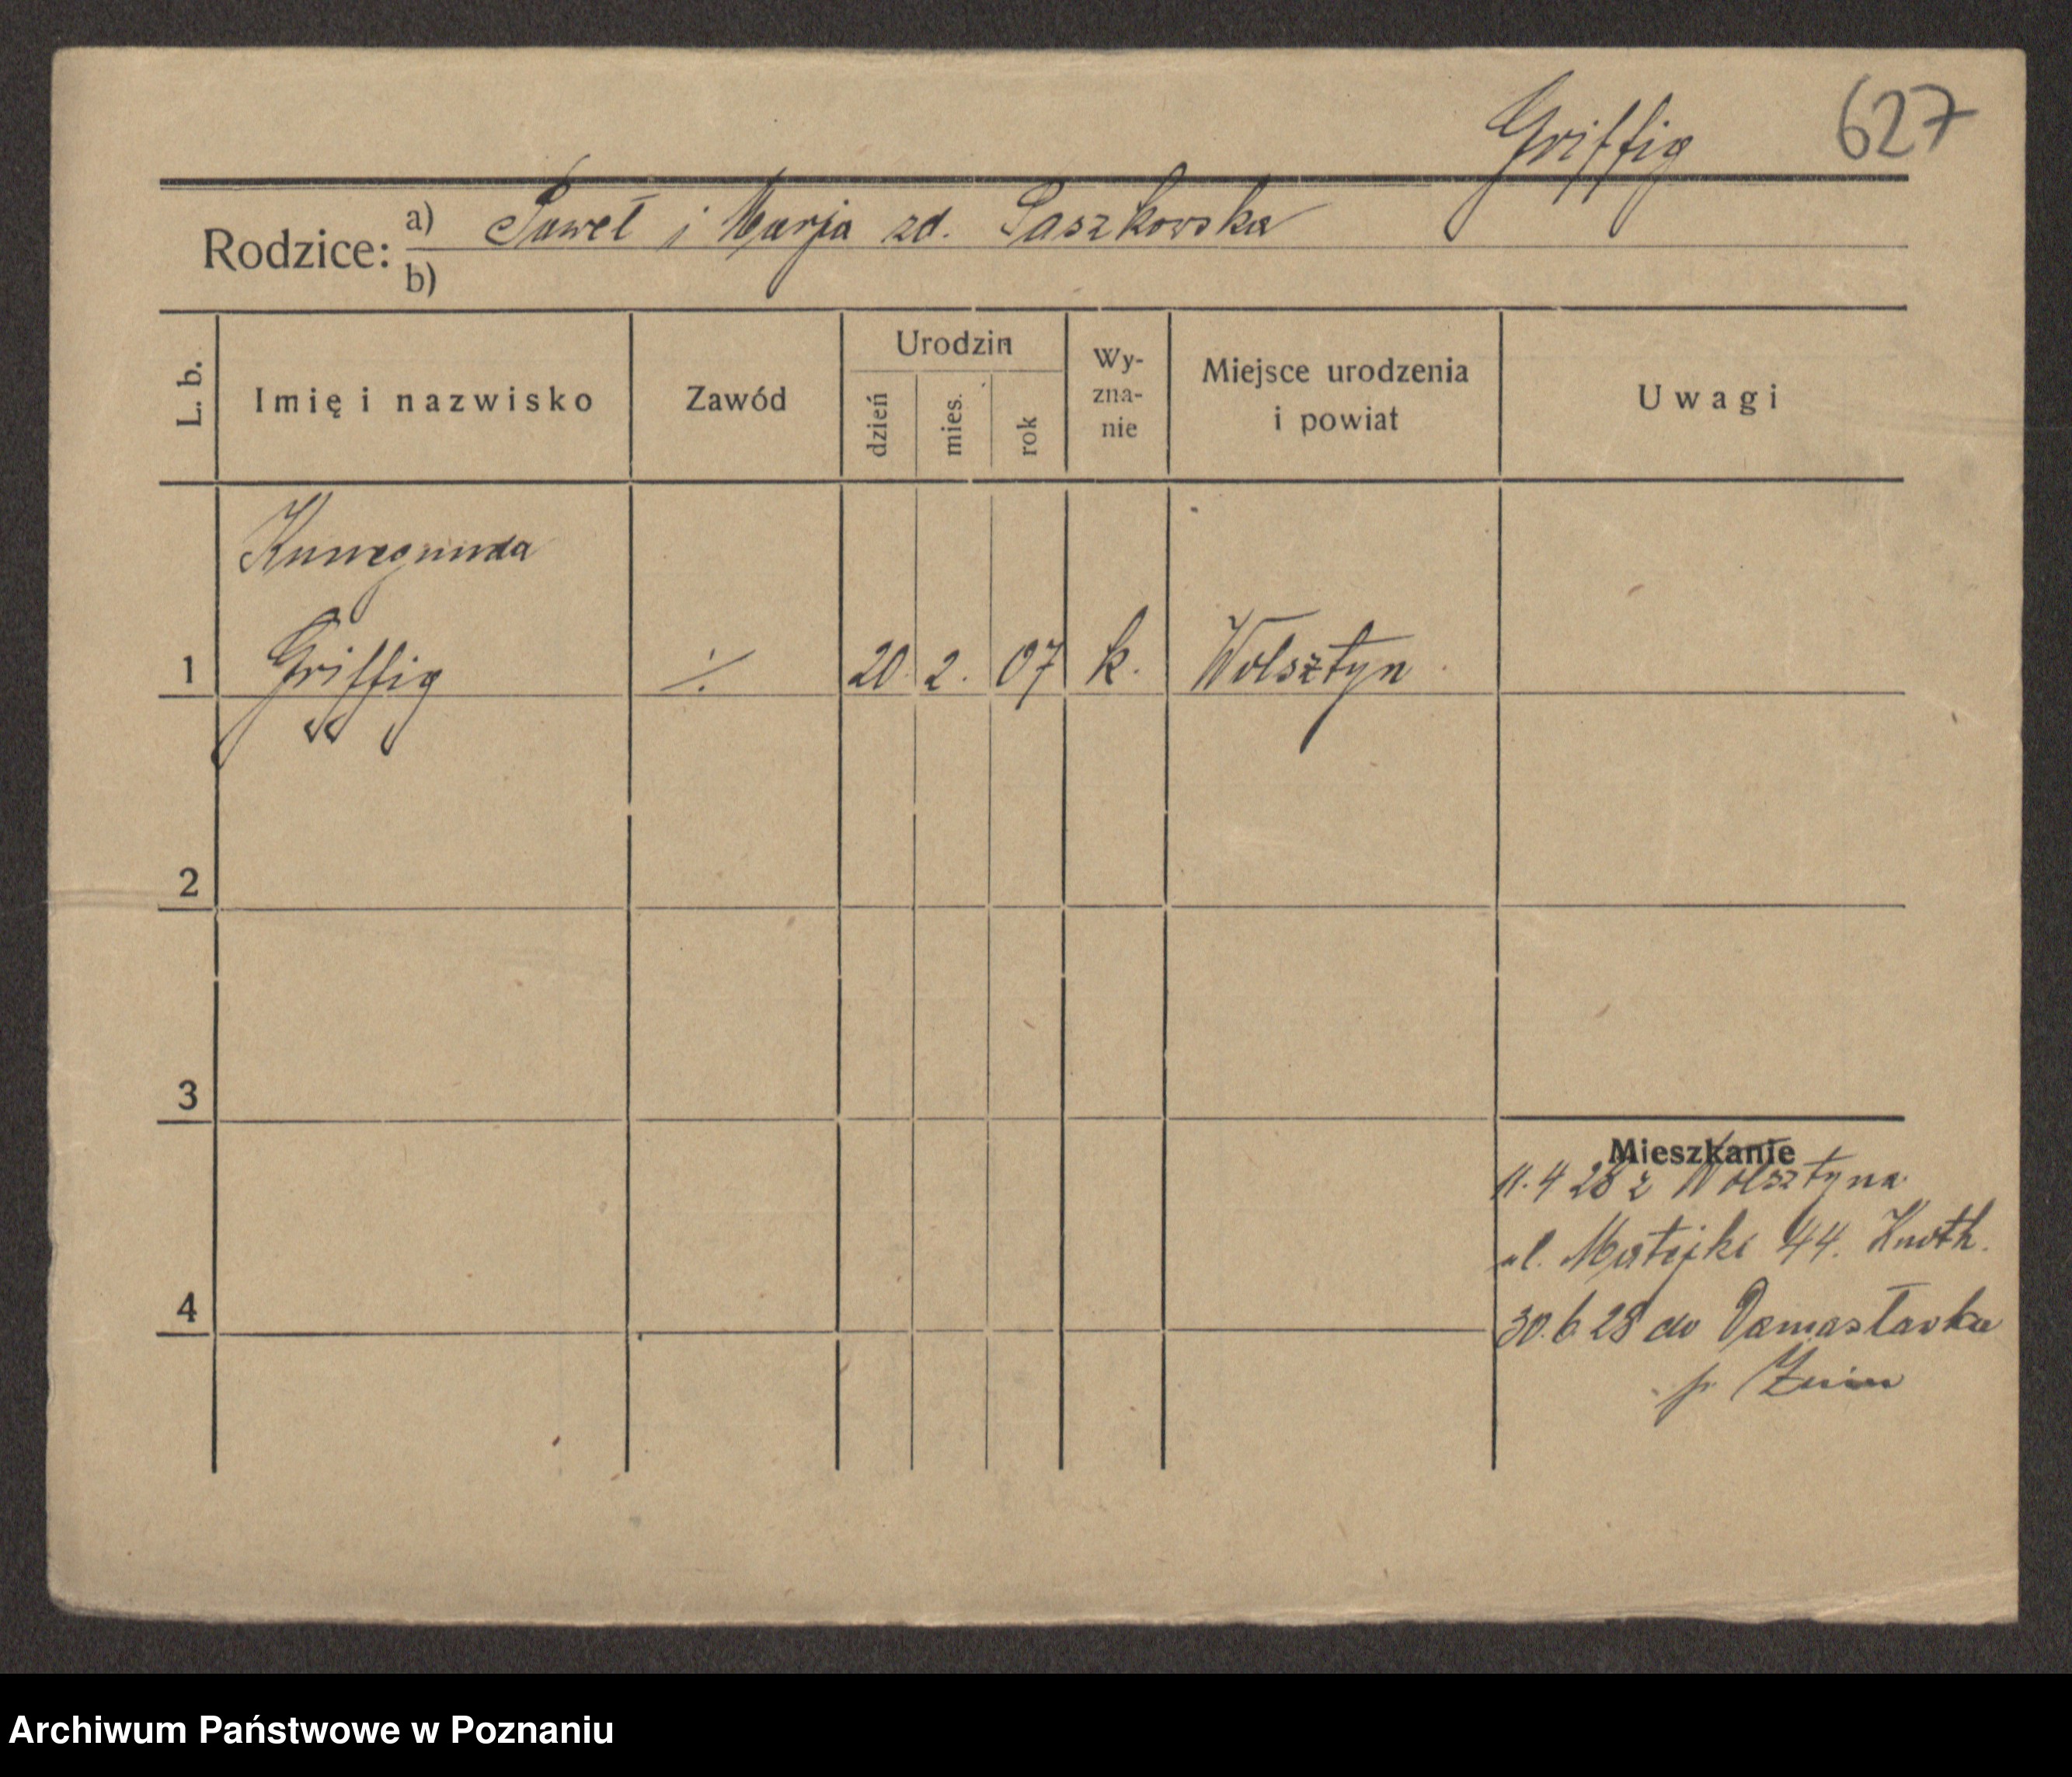 Griffig 627
Rodzice: a) Paweł i Marja zd. Paszkowska
b)
L. b. Imię i nazwisko Zawód Urodzin dzień mies. rok Wy-zna-nie Miejsce urodzenia i powiat Uwagi
Kunegunda
1 Griffig ·/. 20. 2. 07 k. Wolsztyn
2
3
Mieszkanie
11.4 28 z Wolsztyna
ul. Matejki 44.
4 30.6 28 do Damasławka
p. Żnin
Archiwum Państwowe w Poznaniu